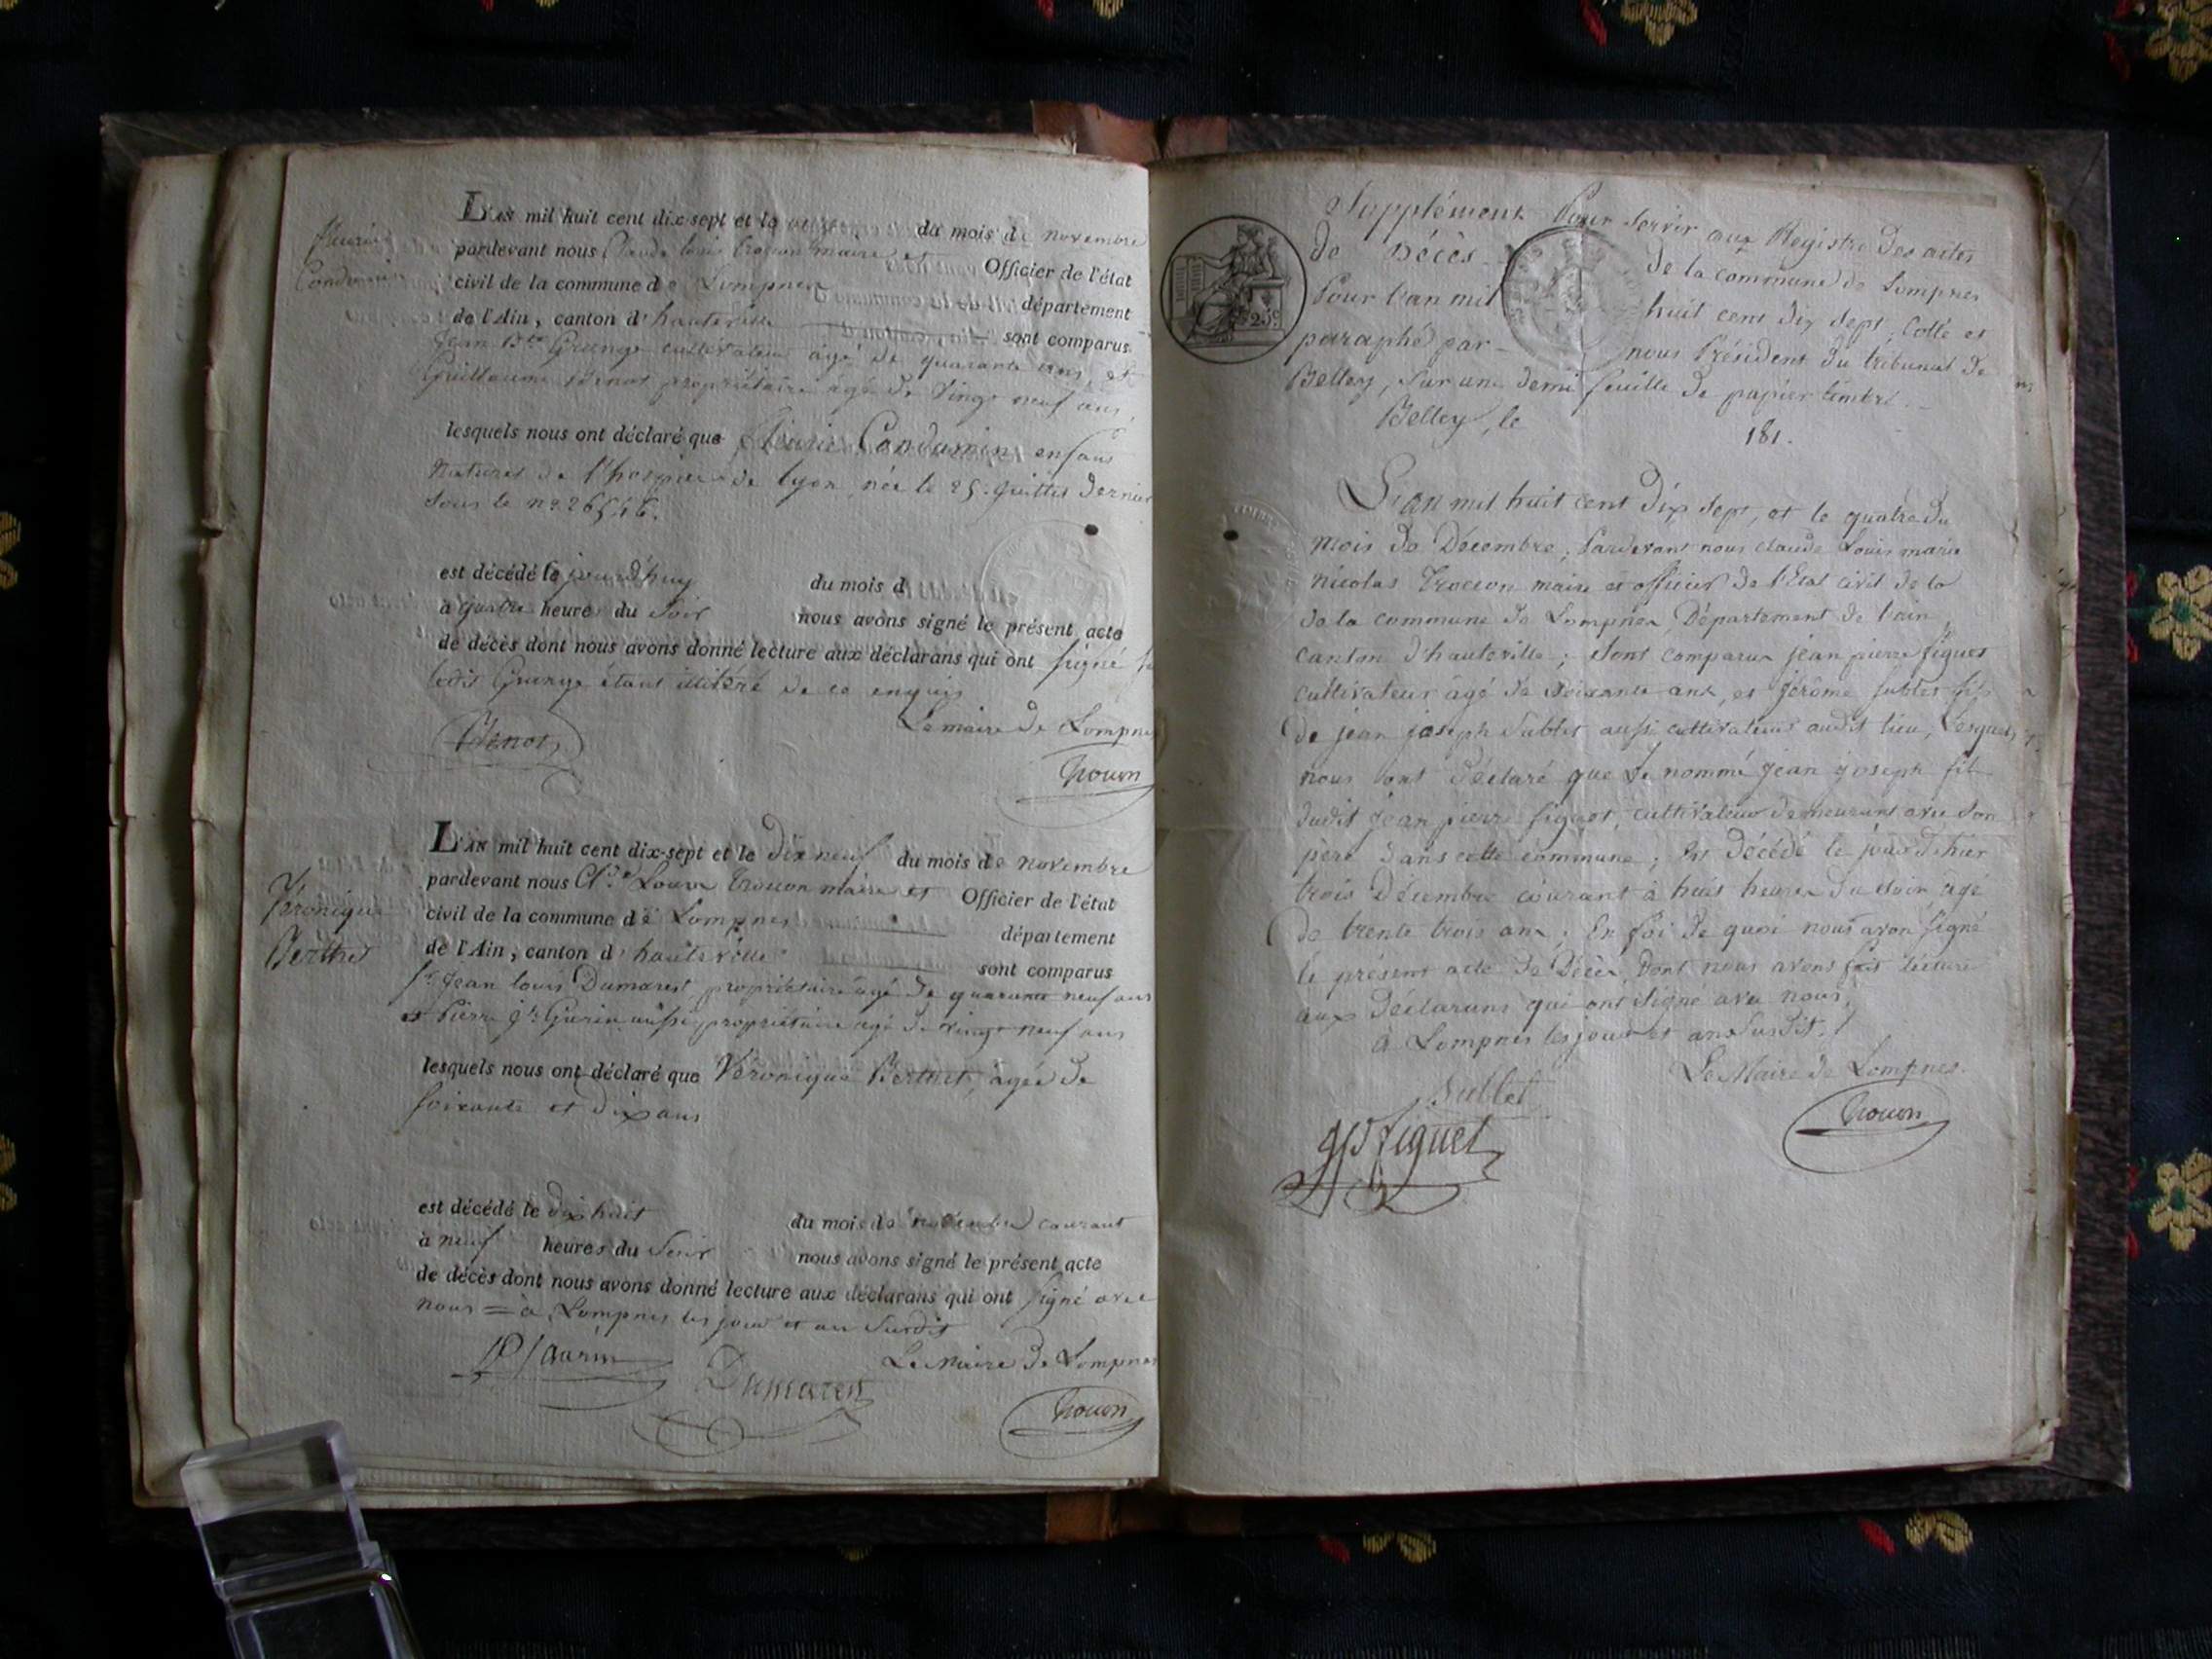 fleurie
Condamin
L'AN mil huit cent dix-sept et le du mois de novembre
pardevant nous Claude louis trocon maire et Officier de l'état
civil de la commune de Lompnes département
de l'Ain, canton d'hauteville sont comparus
Jean Bte Grange cultivateur agé de quarante trois, et
Guillaume Benot propriétaire agé de vingt neuf ans,
lesquels nous ont déclaré que fleurie Condamin enfant
de l'hospice de lyon, née le 25 Juillet dernier
sous le no.
est décédé le jourd'huy du mois d
à quatre heures du soir nous avons signé le présent acte
de décès dont nous avons donné lecture aux déclarans qui ont signé
ledit Grange étant illitéré de ce enquis
Benot
Le maire de Lompnes
Trocon
Véronique
Berthet
L'AN mil huit cent dix-sept et le dix neuf du mois de novembre
pardevant nous Cl.de Louis trocon maire et Officier de l'état
civil de la commune de Lompnes département
de l'Ain, canton d'hauteville sont comparus
Sr. Jean louis Dumarest propriétaire agé de quarante neuf ans
et Pierre aussi propriétaire agé de vingt neuf ans
lesquels nous ont déclaré que Véronique Berthet, agée de
soixante et dix ans
est décédé le dix huit du mois de novembre courant
à neuf heures du soir nous avons signé le présent acte
de décès dont nous avons donné lecture aux déclarans qui ont signé avec
nous = à Lompnes les jour et an susdit
Dumarest
Le Maire de Lompnes
Trocon
Supplément Pour servir aux Registre des actes
de Décès de la commune de Lompnes
Pour l'an mil huit cent dix sept, Cotté et
paraphé par nous Président du tribunal de
Belley, sur une demi feuille de papier timbré.
Belley, le 181.
25c
L'an mil huit cent dix sept, et le quatre du
mois de Décembre, Pardevant nous claude Louis marie
nicolas Trocon maire et officier de l'Etat civil de la
de la commune de Lompnes, Département de l'ain,
canton d'hauteville; sont comparus jean pierre figuet
cultivateur âgé de soixante ans, et Jérôme sublet fils
de jean joseph Sublet aussi cultivateur audit lieu, Lesquels
nous ont déclaré que Le nommé Jean Joseph fils
dudit jean pierre figuet, cultivateur demeurant avec son
père dans cette commune; est décédé le jour d'hier
trois Décembre courant à huit heures du soir, agé
de trente trois ans; En foi de quoi nous avon signé
le présent acte de Décès, dont nous avons fait lecture
aux Déclarans qui ont signé avec nous,
à Lompnes les jour et an susdit.
Sublet
Le Maire de Lompnes.
Trocon
JP figuet